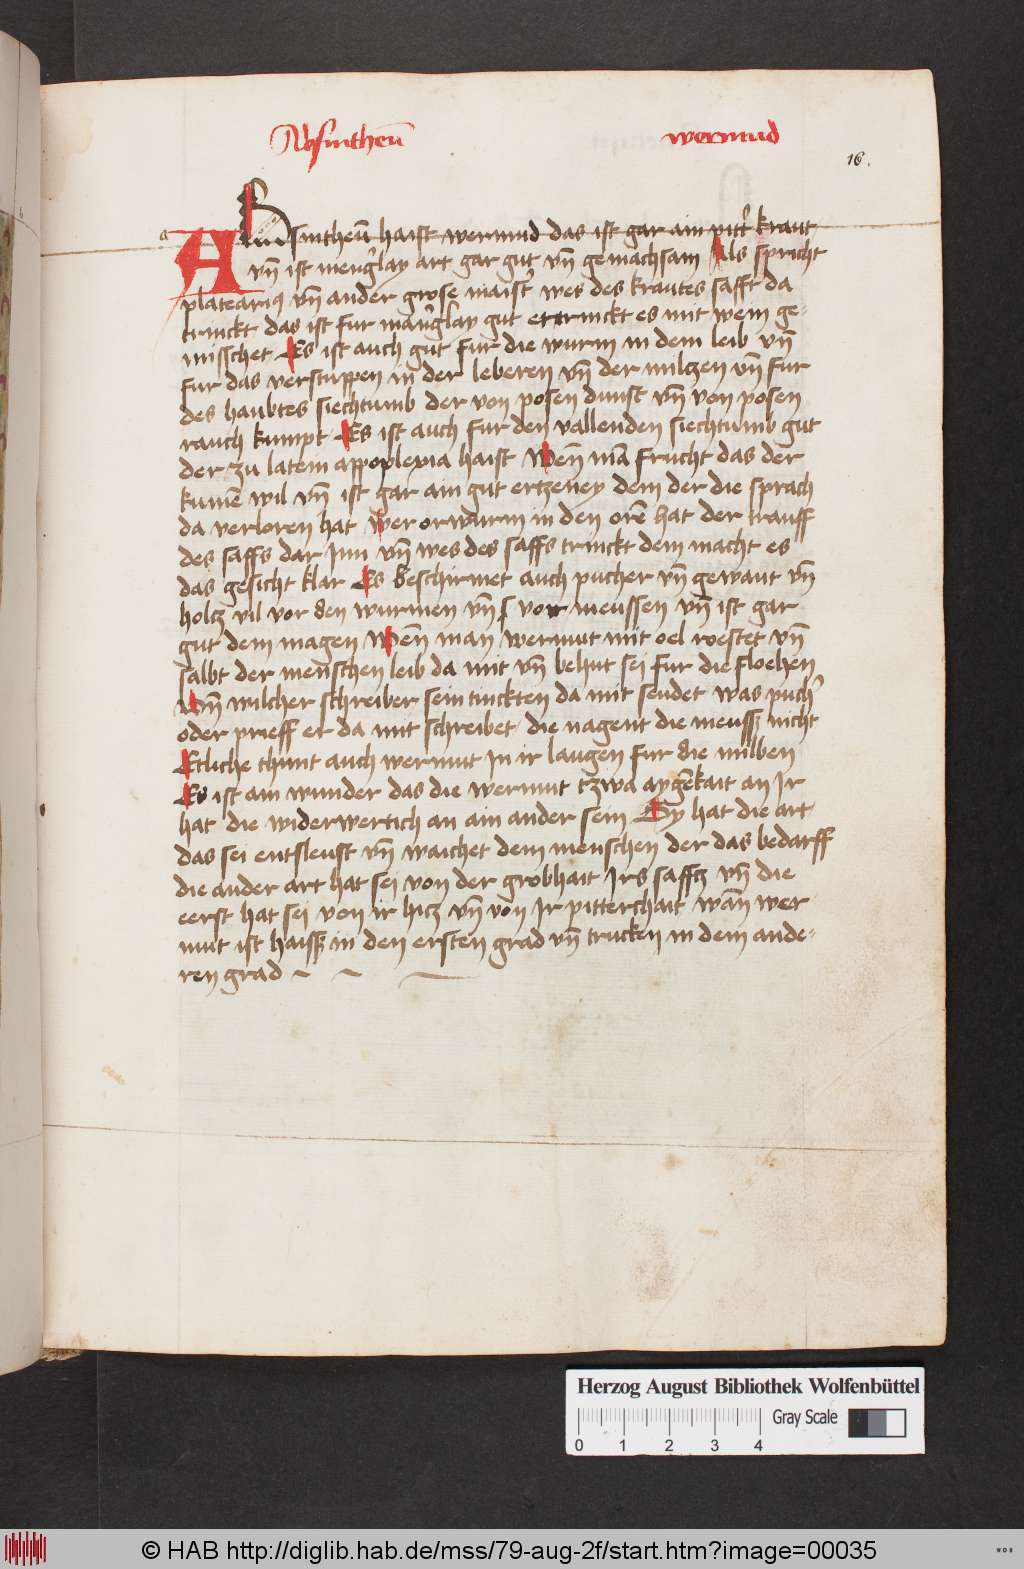 Absintheū wermud
16.
ABsintheū haist wermud das ist gar ain pitt' kraut
vn̄ ist meng'lay art gar gut vn̄ gemachsam Als spricht
platearius vn̄ ander grose maist' wes des krautes safft da
trinckt das ist fur mang'lay gut er trinckt es mit wein ge-
misschet Es ist auch gut fur die wurm in dem leib vn̄
fur das verstuppen in der leberen vn̄ der miltzen vn̄ fur
des haubtes siechtumb der von posen dunst vn̄ von posen
rauch kumpt Es ist auch fur den vallenden siechtumb gut
der zu latein appoplexia haist Wen̄ mā frucht das der
kumē wil vn̄ ist gar ain gut ertzeney dem der die sprach
da verloren hat wer orwurm in den orē hat der trauff
des saffs dar Inn vn̄ wes des saffs trinckt dem macht es
das gesicht klar Es beschirmet auch pucher vn̄ gewant vn̄
holtz vil vor den wurmen vn̄ vor meussen vn̄ ist gar
gut dem magen Wen̄ man wermut mit oel roestet vn̄
salbt der menschen leib da mit vn̄ behut sei fur die floehen
Vn̄ wilcher schreiber sein tinckten da mit seudet was puch'
oder prieff er da mit schreibet die nagent die meussz nicht
Etliche thunt auch wermut In ir laugen fur die milben
Es ist ain wunder das die wermut tzwa aygēkait an Ir
hat die widerwertich an ain ander sein Sy hat die art
das sei entsleust vn̄ waichet dem menschen der das bedarff
die ander art hat sei von der grobhait Irs saffcz vn̄ die
eerst hat sei von ir hitz vn̄ von Ir pitterchait wan̄ wer
mut ist haissz in den ersten grad vn̄ trucken in dem ande-
ren grad
Herzog August Bibliothek Wolfenbüttel
Gray Scale
0 1 2 3 4
© HAB http://diglib.hab.de/mss/79-aug-2f/start.htm?image=00035